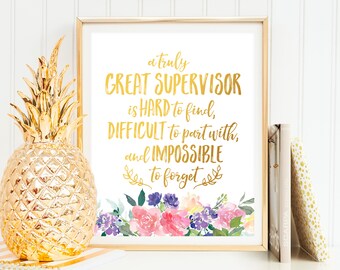 a truly
GREAT SUPERVISOR
is HARD to find,
DIFFICULT to part with,
and IMPOSSIBLE
to forget